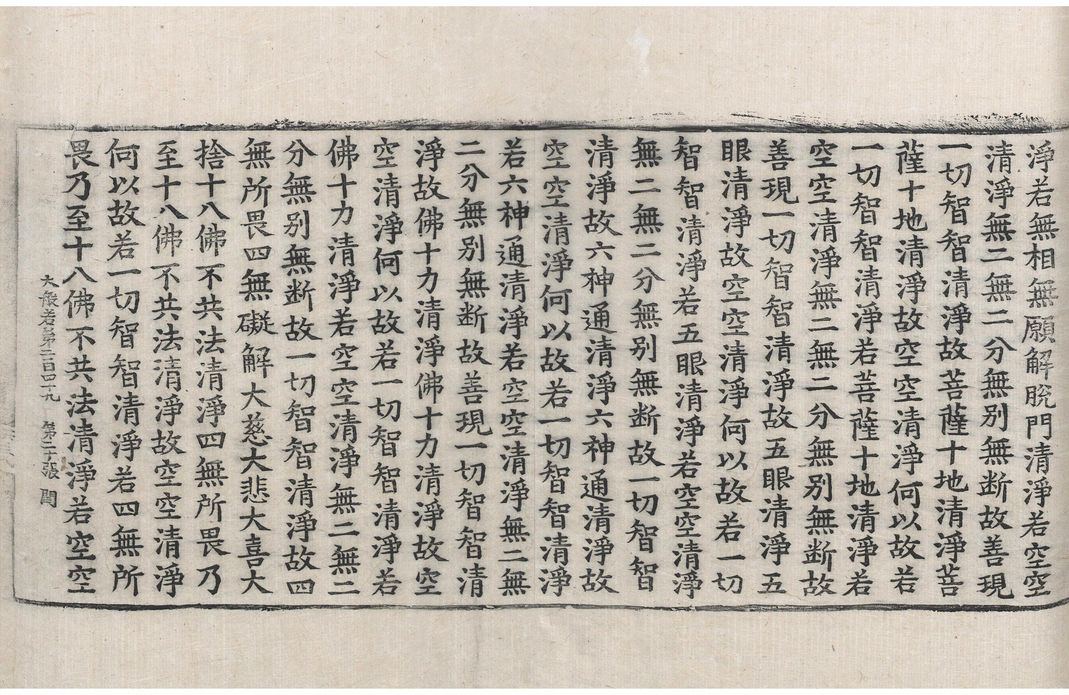 淨若無相無願解脱門清淨若空空
清淨無二無二分無别無断故善現
一切智智清淨故菩薩十地清淨菩
薩十地清淨故空空清淨何以故若
一切智智清淨若菩薩十地清淨若
空空清淨無二無二分無别無断故
善現一切智智清淨故五眼清淨五
眼清淨故空空清淨何以故若一切
智智清淨若五眼清淨若空空清淨
無二無二分無别無断故一切智智
清淨故六神通清淨六神通清淨故
空空清淨何以故若一切智智清淨
若六神通清淨若空空清淨無二無
二分無别無断故善現一切智智清
淨故佛十力清淨佛十力清淨故空
空清淨何以故若一切智智清淨若
佛十力清淨若空空清淨無二無二
分無别無断故一切智智清淨故四
無所畏四無礙解大慈大悲大喜大
捨十八佛不共法清淨四無所畏乃
至十八佛不共法清淨故空空清淨
何以故若一切智智清淨若四無所
畏乃至十八佛不共法清淨若空空
大般若第二百四十九 第二十張